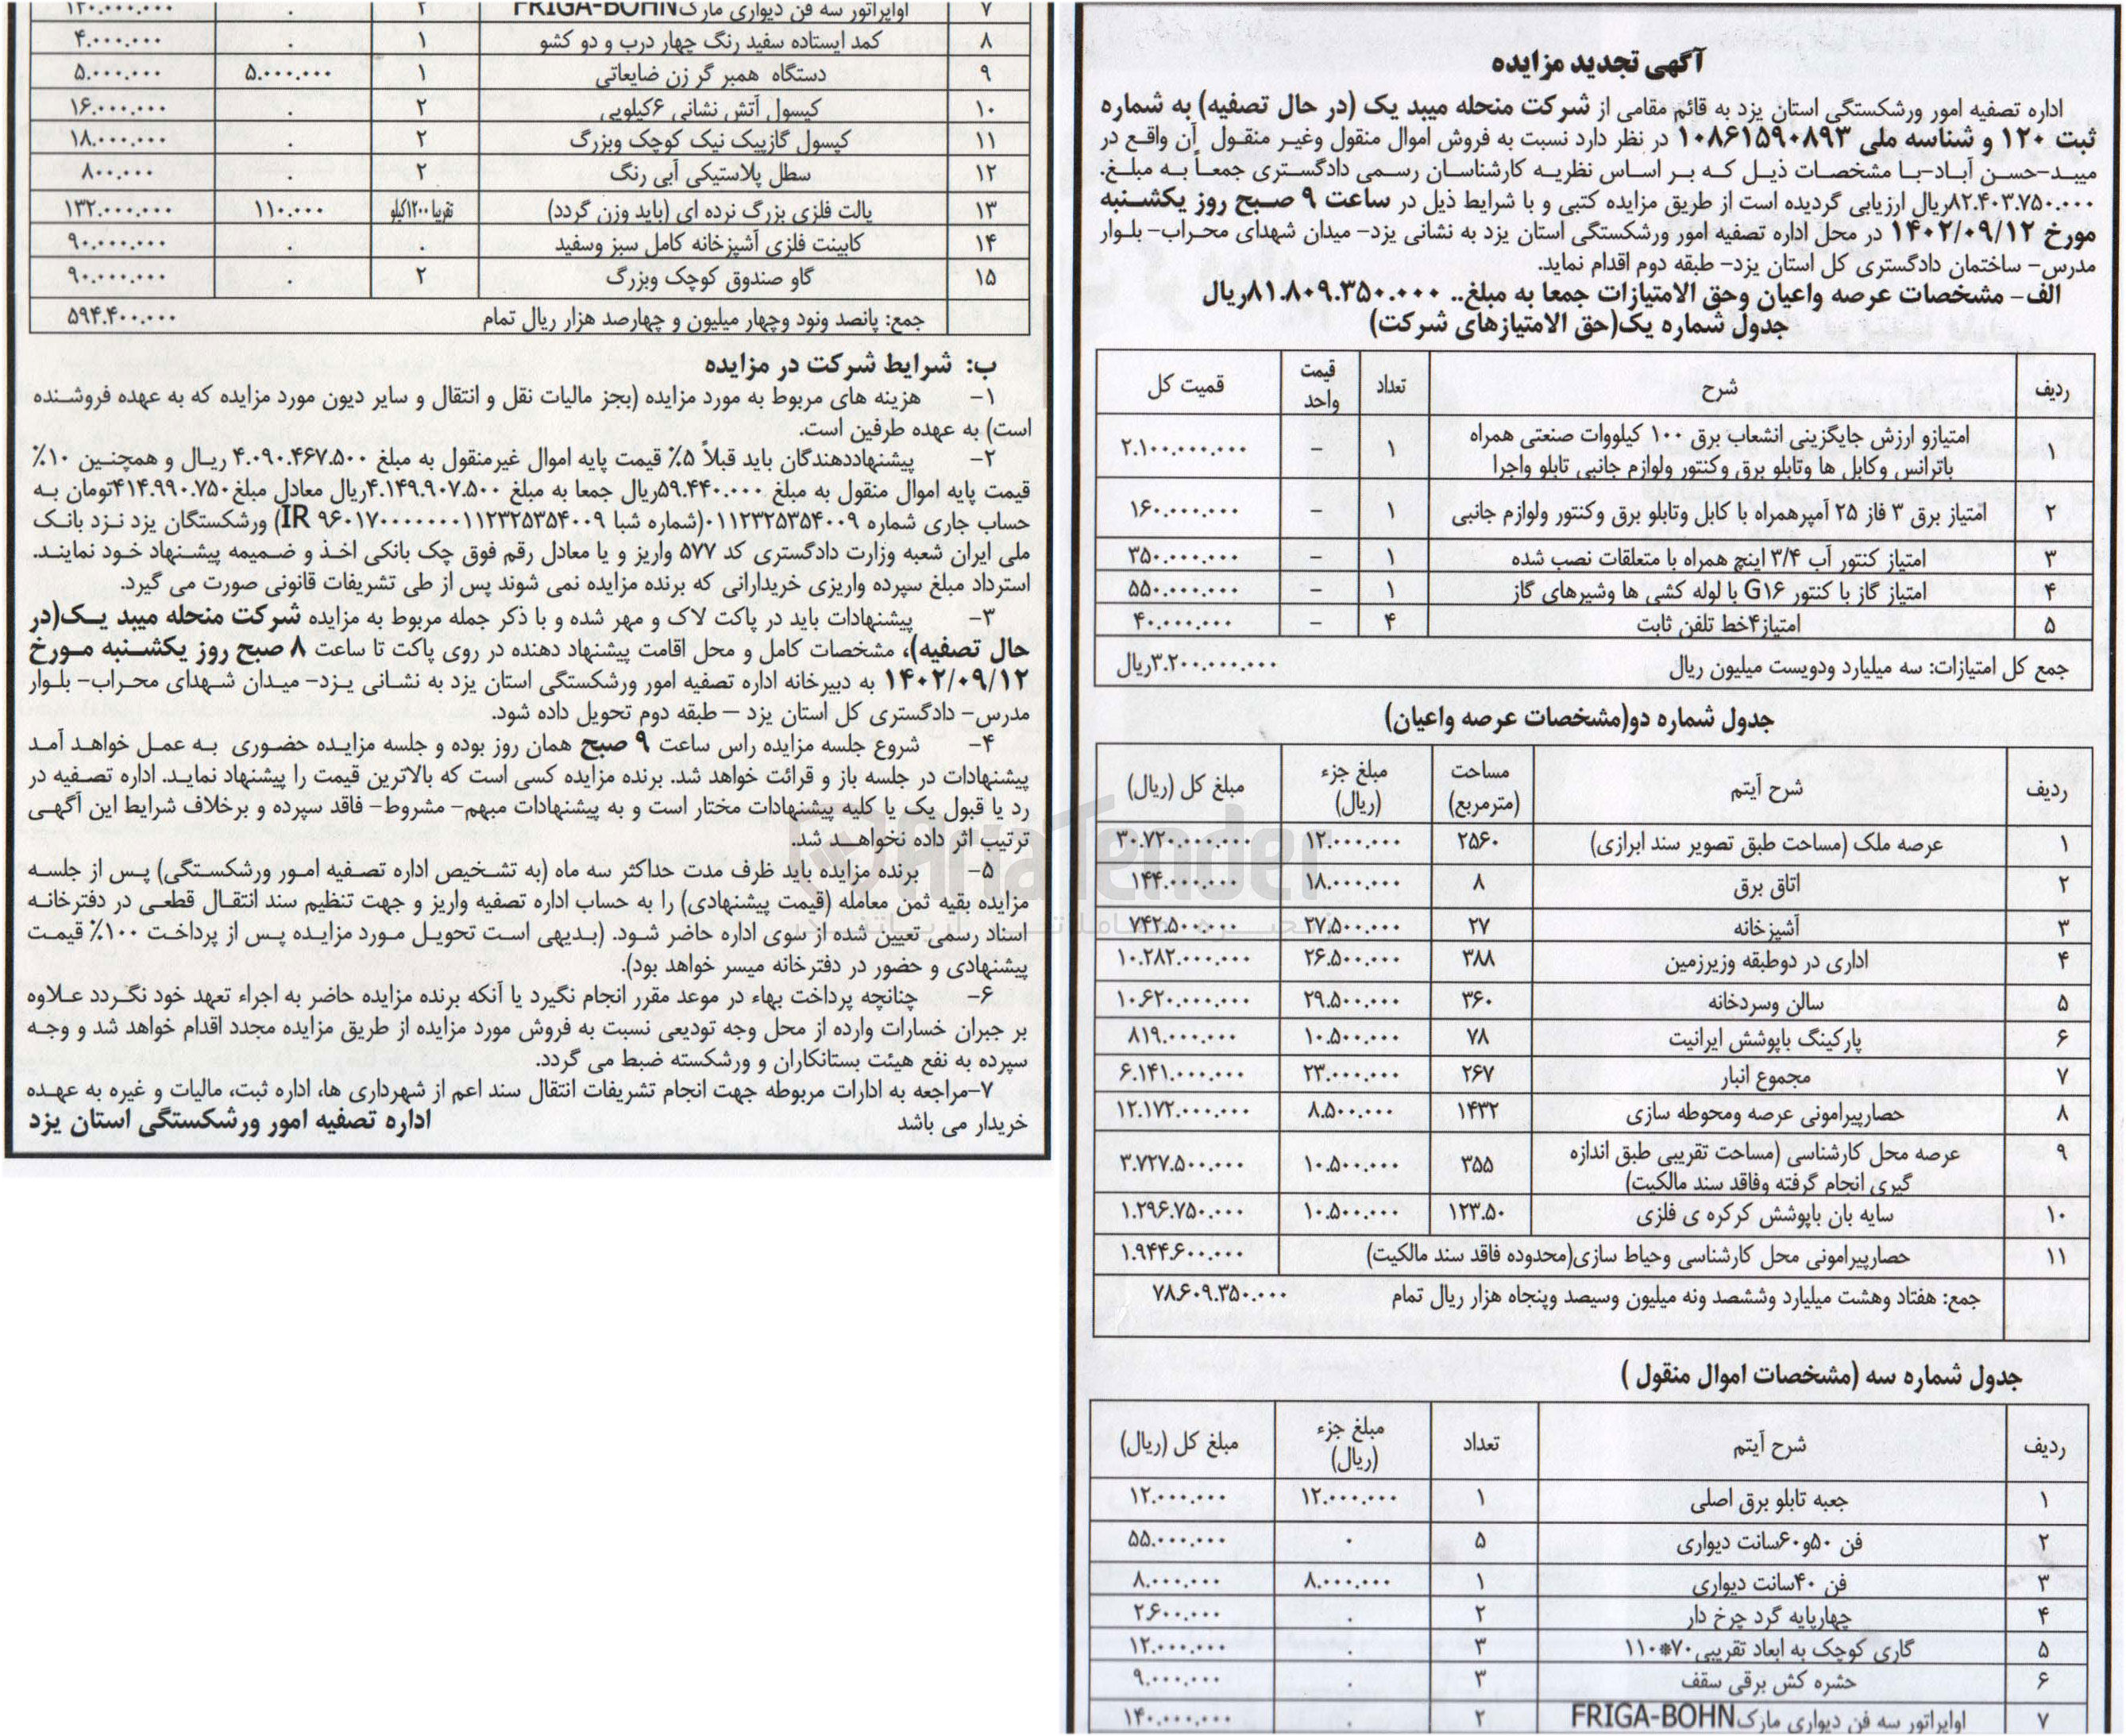 آگهی تجدید مزایده
اداره تصفیه امور ورشکستگی استان یزد به قائم مقامی از شرکت منحله میبد یک (در حال تصفیه) به شماره
ثبت ۱۲۰ و شناسه ملی ۱۰۸۶۱۵۹۰۸۹۳ در نظر دارد نسبت به فروش اموال منقول وغیر منقول آن واقع در
میبد-حسن آباد-با مشخصات ذیل که بر اساس نظریه کارشناسان رسمی دادگستری جمعاً به مبلغ.
۸۲.۴۰۳.۷۵۰.۰۰۰ریال ارزیابی گردیده است از طریق مزایده کتبی و با شرایط ذیل در ساعت ۹ صبح روز یکشنبه
مورخ ۱۴۰۲/۰۹/۱۲ در محل اداره تصفیه امور ورشکستگی استان یزد به نشانی یزد- میدان شهدای محراب- بلوار
مدرس- ساختمان دادگستری کل استان یزد- طبقه دوم اقدام نماید.
الف- مشخصات عرصه واعیان وحق الامتیازات جمعا به مبلغ.. ۸۱.۸۰۹.۳۵۰.۰۰۰ریال
جدول شماره یک(حق الامتیازهای شرکت)
ردیف شرح تعداد قیمت واحد قمیت کل
۱ امتیازو ارزش جایگزینی انشعاب برق ۱۰۰ کیلووات صنعتی همراه ۱ - ۲.۱۰۰.۰۰۰.۰۰۰
باترانس وکابل ها وتابلو برق وکنتور ولوازم جانبی تابلو واجرا
۲ امتیاز برق ۳ فاز ۲۵ آمپرهمراه با کابل وتابلو برق وکنتور ولوازم جانبی ۱ - ۱۶۰.۰۰۰.۰۰۰
۳ امتیاز کنتور آب ۳/۴ اینچ همراه با متعلقات نصب شده ۱ - ۳۵۰.۰۰۰.۰۰۰
۴ امتیاز گاز با کنتور G۱۶ با لوله کشی ها وشیرهای گاز ۱ - ۵۵۰.۰۰۰.۰۰۰
۵ امتیاز۴خط تلفن ثابت ۴ - ۴۰.۰۰۰.۰۰۰
جمع کل امتیازات: سه میلیارد ودویست میلیون ریال ۳.۲۰۰.۰۰۰.۰۰۰ریال
جدول شماره دو(مشخصات عرصه واعیان)
ردیف شرح آیتم مساحت (مترمربع) مبلغ جزء (ریال) مبلغ کل (ریال)
۱ عرصه ملک (مساحت طبق تصویر سند ابرازی) ۲۵۶۰ ۱۲.۰۰۰.۰۰۰ ۳۰.۷۲۰.۰۰۰.۰۰۰
۲ اتاق برق ۸ ۱۸.۰۰۰.۰۰۰ ۱۴۴.۰۰۰.۰۰۰
۳ آشپزخانه ۲۷ ۲۷.۵۰۰.۰۰۰ ۷۴۲.۵۰۰.۰۰۰
۴ اداری در دوطبقه وزیرزمین ۳۸۸ ۲۶.۵۰۰.۰۰۰ ۱۰.۲۸۲.۰۰۰.۰۰۰
۵ سالن وسردخانه ۳۶۰ ۲۹.۵۰۰.۰۰۰ ۱۰.۶۲۰.۰۰۰.۰۰۰
۶ پارکینگ باپوشش ایرانیت ۷۸ ۱۰.۵۰۰.۰۰۰ ۸۱۹.۰۰۰.۰۰۰
۷ مجموع انبار ۲۶۷ ۲۳.۰۰۰.۰۰۰ ۶.۱۴۱.۰۰۰.۰۰۰
۸ حصارپیرامونی عرصه ومحوطه سازی ۱۴۳۲ ۸.۵۰۰.۰۰۰ ۱۲.۱۷۲.۰۰۰.۰۰۰
۹ عرصه محل کارشناسی (مساحت تقریبی طبق اندازه ۳۵۵ ۱۰.۵۰۰.۰۰۰ ۳.۷۲۷.۵۰۰.۰۰۰
گیری انجام گرفته وفاقد سند مالکیت)
۱۰ سایه بان باپوشش کرکره ی فلزی ۱۲۳.۵۰ ۱۰.۵۰۰.۰۰۰ ۱.۲۹۶.۷۵۰.۰۰۰
۱۱ حصارپیرامونی محل کارشناسی وحیاط سازی(محدوده فاقد سند مالکیت) ۱.۹۴۴.۶۰۰.۰۰۰
جمع: هفتاد وهشت میلیارد وششصد ونه میلیون وسیصد وپنجاه هزار ریال تمام ۷۸.۶۰۹.۳۵۰.۰۰۰
جدول شماره سه (مشخصات اموال منقول )
ردیف شرح آیتم تعداد مبلغ جزء (ریال) مبلغ کل (ریال)
۱ جعبه تابلو برق اصلی ۱ ۱۲.۰۰۰.۰۰۰ ۱۲.۰۰۰.۰۰۰
۲ فن ۵۰و۶۰سانت دیواری ۵ ۰ ۵۵.۰۰۰.۰۰۰
۳ فن ۴۰سانت دیواری ۱ ۸.۰۰۰.۰۰۰ ۸.۰۰۰.۰۰۰
۴ چهارپایه گرد چرخ دار ۲ ۰ ۲.۶۰۰.۰۰۰
۵ گاری کوچک به ابعاد تقریبی۷۰*۱۱۰ ۳ ۰ ۱۲.۰۰۰.۰۰۰
۶ حشره کش برقی سقف ۳ ۰ ۹.۰۰۰.۰۰۰
۷ اواپراتور سه فن دیواری مارکFRIGA-BOHN ۲ ۱۴۰.۰۰۰.۰۰۰
۷ اواپراتور سه فن دیواری مارکFRIGA-BOHN ۲ ۰ ۱۴۰.۰۰۰.۰۰۰
۸ کمد ایستاده سفید رنگ چهار درب و دو کشو ۱ ۰ ۴.۰۰۰.۰۰۰
۹ دستگاه همبر گر زن ضایعاتی ۱ ۵.۰۰۰.۰۰۰ ۵.۰۰۰.۰۰۰
۱۰ کپسول آتش نشانی ۶کیلویی ۲ ۰ ۱۶.۰۰۰.۰۰۰
۱۱ کپسول گازپیک نیک کوچک وبزرگ ۲ ۰ ۱۸.۰۰۰.۰۰۰
۱۲ سطل پلاستیکی آبی رنگ ۲ ۰ ۸۰۰.۰۰۰
۱۳ پالت فلزی بزرگ نرده ای (باید وزن گردد) تقریبا ۱۲۰۰کیلو ۱۱۰.۰۰۰ ۱۳۲.۰۰۰.۰۰۰
۱۴ کابینت فلزی آشپزخانه کامل سبز وسفید ۰ ۰ ۹۰.۰۰۰.۰۰۰
۱۵ گاو صندوق کوچک وبزرگ ۲ ۰ ۹۰.۰۰۰.۰۰۰
جمع: پانصد ونود وچهار میلیون و چهارصد هزار ریال تمام ۵۹۴.۴۰۰.۰۰۰
ب: شرایط شرکت در مزایده
۱- هزینه های مربوط به مورد مزایده (بجز مالیات نقل و انتقال و سایر دیون مورد مزایده که به عهده فروشنده
است) به عهده طرفین است.
۲- پیشنهاددهندگان باید قبلاً ۵٪ قیمت پایه اموال غیرمنقول به مبلغ ۴.۰۹۰.۴۶۷.۵۰۰ ریال و همچنین ۱۰٪
قیمت پایه اموال منقول به مبلغ ۵۹.۴۴۰.۰۰۰ریال جمعا به مبلغ ۴.۱۴۹.۹۰۷.۵۰۰ریال معادل مبلغ۴۱۴.۹۹۰.۷۵۰تومان به
حساب جاری شماره ۰۱۱۲۳۲۵۳۵۴۰۰۹(شماره شبا IR ۹۶۰۱۷۰۰۰۰۰۰۰۱۱۲۳۲۵۳۵۴۰۰۹) ورشکستگان یزد نزد بانک
ملی ایران شعبه وزارت دادگستری کد ۵۷۷ واریز و یا معادل رقم فوق چک بانکی اخذ و ضمیمه پیشنهاد خود نمایند.
استرداد مبلغ سپرده واریزی خریدارانی که برنده مزایده نمی شوند پس از طی تشریفات قانونی صورت می گیرد.
۳- پیشنهادات باید در پاکت لاک و مهر شده و با ذکر جمله مربوط به مزایده شرکت منحله میبد یک(در
حال تصفیه)، مشخصات کامل و محل اقامت پیشنهاد دهنده در روی پاکت تا ساعت ۸ صبح روز یکشنبه مورخ
۱۴۰۲/۰۹/۱۲ به دبیرخانه اداره تصفیه امور ورشکستگی استان یزد به نشانی یزد- میدان شهدای محراب- بلوار
مدرس- دادگستری کل استان یزد – طبقه دوم تحویل داده شود.
۴- شروع جلسه مزایده راس ساعت ۹ صبح همان روز بوده و جلسه مزایده حضوری به عمل خواهد آمد
پیشنهادات در جلسه باز و قرائت خواهد شد. برنده مزایده کسی است که بالاترین قیمت را پیشنهاد نماید. اداره تصفیه در
رد یا قبول یک یا کلیه پیشنهادات مختار است و به پیشنهادات مبهم- مشروط- فاقد سپرده و برخلاف شرایط این آگهی
ترتیب اثر داده نخواهد شد.
۵- برنده مزایده باید ظرف مدت حداکثر سه ماه (به تشخیص اداره تصفیه امور ورشکستگی) پس از جلسه
مزایده بقیه ثمن معامله (قیمت پیشنهادی) را به حساب اداره تصفیه واریز و جهت تنظیم سند انتقال قطعی در دفترخانه
اسناد رسمی تعیین شده از سوی اداره حاضر شود. (بدیهی است تحویل مورد مزایده پس از پرداخت ۱۰۰٪ قیمت
پیشنهادی و حضور در دفترخانه میسر خواهد بود).
۶- چنانچه پرداخت بهاء در موعد مقرر انجام نگیرد یا آنکه برنده مزایده حاضر به اجراء تعهد خود نگردد علاوه
بر جبران خسارات وارده از محل وجه تودیعی نسبت به فروش مورد مزایده از طریق مزایده مجدد اقدام خواهد شد و وجه
سپرده به نفع هیئت بستانکاران و ورشکسته ضبط می گردد.
۷-مراجعه به ادارات مربوطه جهت انجام تشریفات انتقال سند اعم از شهرداری ها، اداره ثبت، مالیات و غیره به عهده
خریدار می باشد اداره تصفیه امور ورشکستگی استان یزد
AriaTender